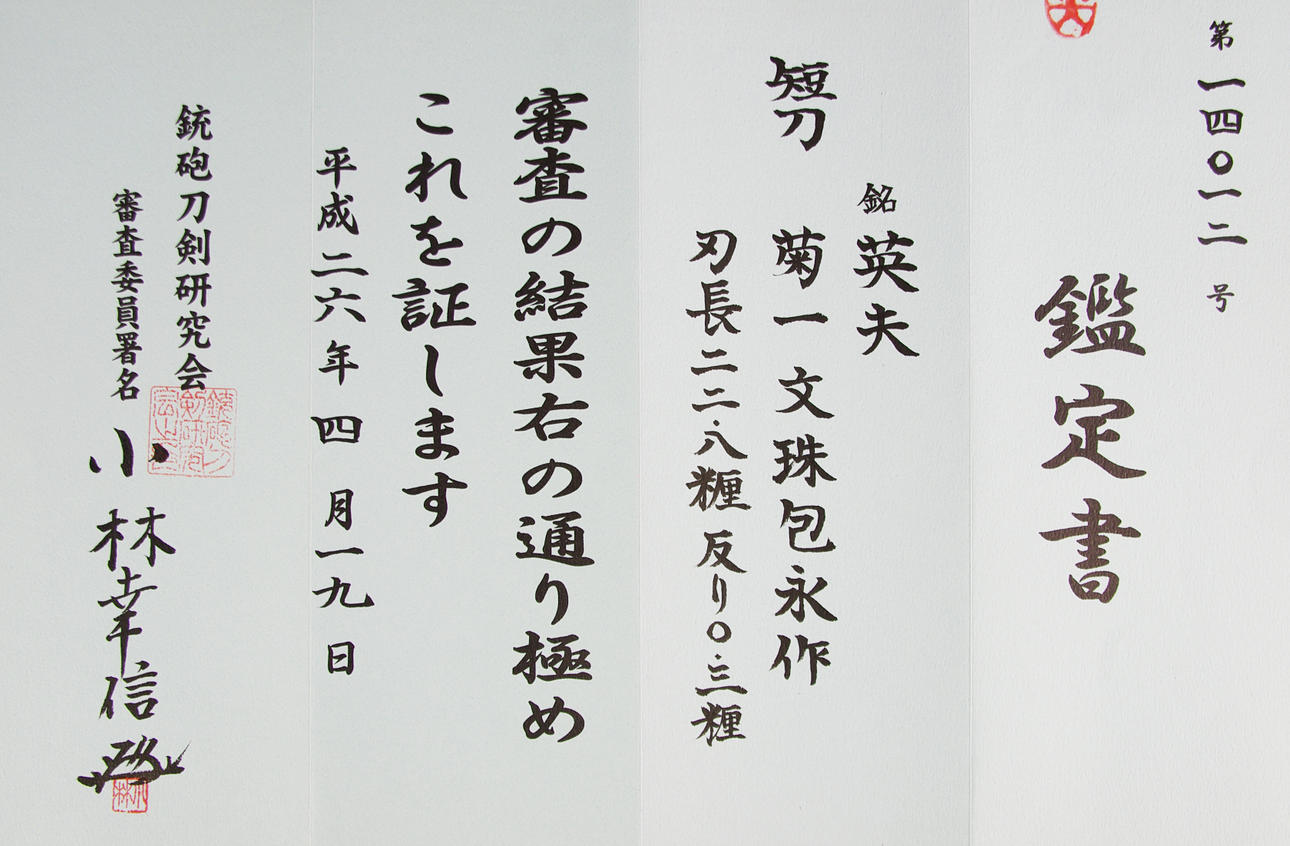 第一四〇一二号
鑑定書
銘 英夫
短刀 菊一文珠包永作
刃長二二・八糎 反り〇・三糎
審査の結果右の通り極め
これを証します
平成二六年四月一九日
銃砲刀剣研究会
審査委員署名 小林幸信